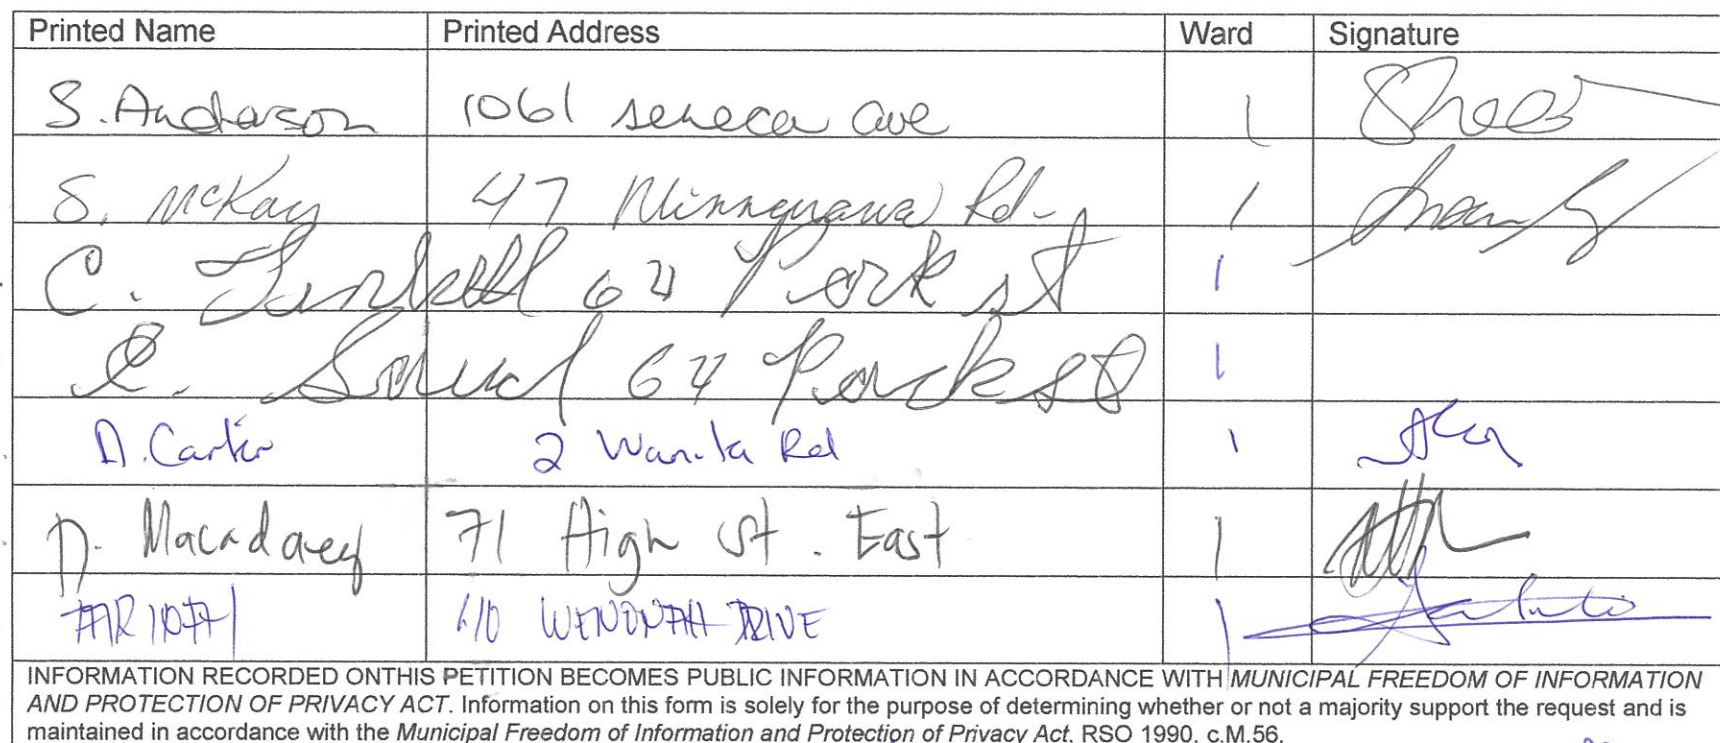 Printed Name Printed Address Ward Signature
S. Anderson 1061 seneca ave 1
S. McKay 47 Minnewawa Rd- 1
C. 64 Park st 1
64 Park st 1
D. Carter 2 Wanita Rd 1
D. 71 High St. East 1
WENONAH DRIVE 1
INFORMATION RECORDED ONTHIS PETITION BECOMES PUBLIC INFORMATION IN ACCORDANCE WITH MUNICIPAL FREEDOM OF INFORMATION
AND PROTECTION OF PRIVACY ACT. Information on this form is solely for the purpose of determining whether or not a majority support the request and is
maintained in accordance with the Municipal Freedom of Information and Protection of Privacy Act, RSO 1990, c.M.56.